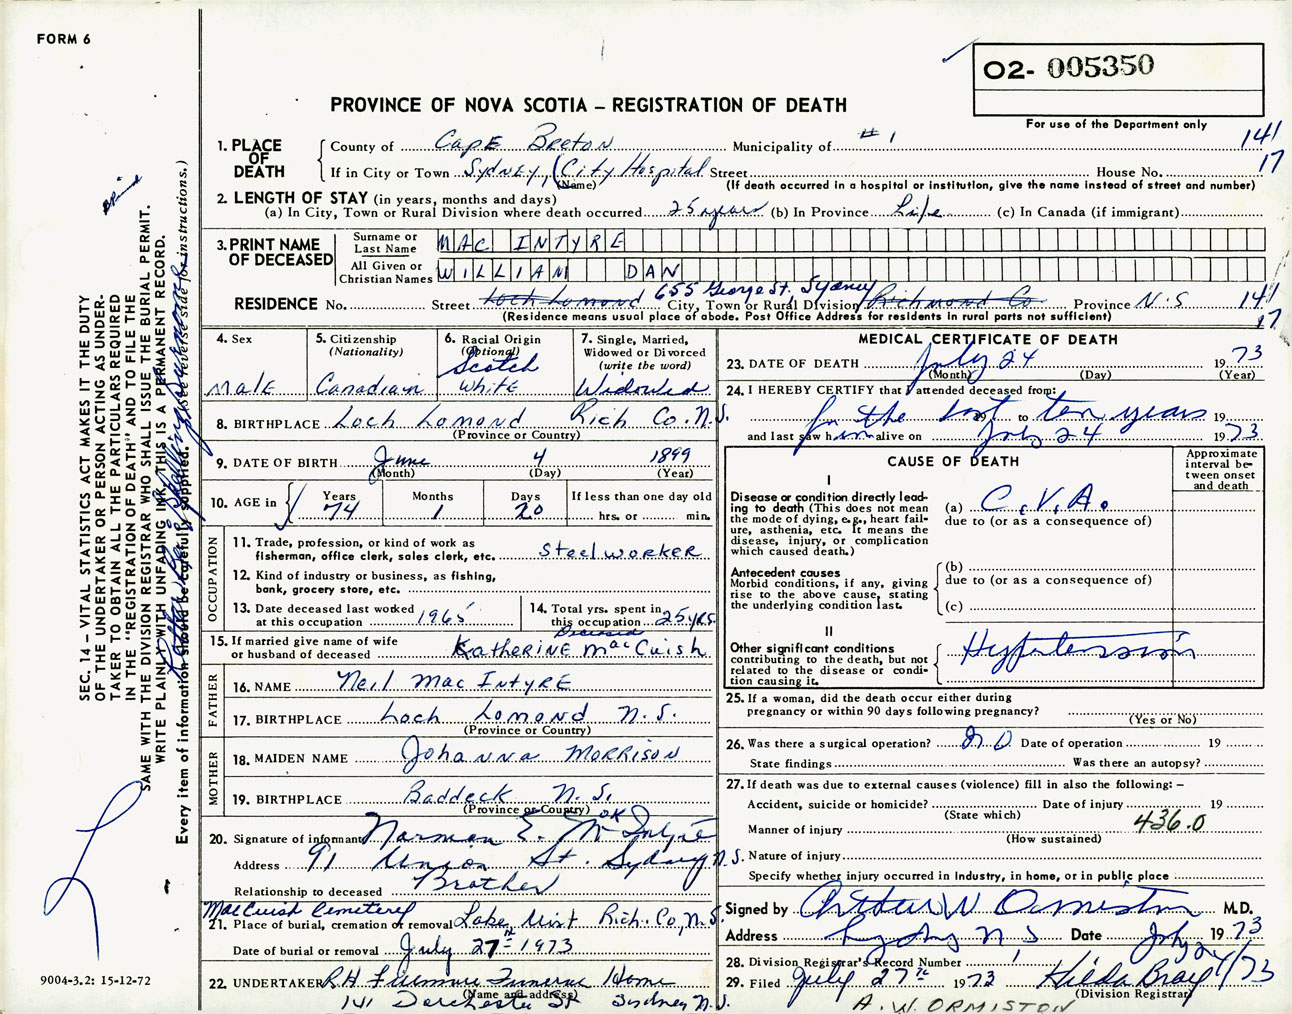 FORM 6
O2- 005350
For use of the Department only
PROVINCE OF NOVA SCOTIA – REGISTRATION OF DEATH
1. PLACE OF DEATH
County of Cape Breton Municipality of # 1 141
If in City or Town Sydney, (City Hospital Street House No. 17
(Name) (If death occurred in a hospital or institution, give the name instead of street and number)
2. LENGTH OF STAY (in years, months and days)
(a) In City, Town or Rural Division where death occurred 25 years (b) In Province Life (c) In Canada (if immigrant)
3. PRINT NAME OF DECEASED
Surname or Last Name MAC INTYRE
All Given or Christian Names WILLIAM DAN
655 George St. Sydney
RESIDENCE No. Street Loch Lomond City, Town or Rural Division Richmond Co Province N.S 141
17
(Residence means usual place of abode. Post Office Address for residents in rural parts not sufficient)
4. Sex
Male
5. Citizenship
(Nationality)
Canadian
6. Racial Origin
(Optional)
Scotch
White
7. Single, Married,
Widowed or Divorced
(write the word)
Widowed
8. BIRTHPLACE Loch Lomond Rich Co. N.S.
(Province or Country)
9. DATE OF BIRTH June 4 1899
(Month) (Day) (Year)
10. AGE in Years Months Days If less than one day old
74 1 20 hrs. or min.
OCCUPATION
11. Trade, profession, or kind of work as
fisherman, office clerk, sales clerk, etc. Steelworker
12. Kind of industry or business, as fishing,
bank, grocery store, etc.
13. Date deceased last worked
at this occupation 1965
14. Total yrs. spent in
this occupation 25 yrs.
Deceased
15. If married give name of wife
or husband of deceased Katherine MacCuish
FATHER
16. NAME Neil MacIntyre
17. BIRTHPLACE Loch Lomond N.S.
(Province or Country)
MOTHER
18. MAIDEN NAME Johanna Morrison
19. BIRTHPLACE Baddeck N.S.
(Province or Country)
OK
20. Signature of informant Norman E. McIntyre
Address 91 Union St. Sydney N.S.
Relationship to deceased Brother
MacCuish Cemetery
21. Place of burial, cremation or removal Lake Uist Rich. Co, N.S.
Date of burial or removal July 27th 1973
22. UNDERTAKER R.H Fillmore Funeral Home
(Name and address)
141 Dorchester St Sydney N.S.
MEDICAL CERTIFICATE OF DEATH
23. DATE OF DEATH July 24 1973
(Month) (Day) (Year)
24. I HEREBY CERTIFY that I attended deceased from:
for the last to ten years 19
and last saw him alive on July 24 1973
CAUSE OF DEATH
Approximate interval between onset and death
I
Disease or condition directly leading to death (This does not mean the mode of dying, e.g., heart failure, asthenia, etc. It means the disease, injury, or complication which caused death.)
(a) C.V.A.
due to (or as a consequence of)
Antecedent causes
Morbid conditions, if any, giving rise to the above cause, stating the underlying condition last.
(b)
due to (or as a consequence of)
(c)
II
Other significant conditions
contributing to the death, but not related to the disease or condition causing it.
Hypertension
25. If a woman, did the death occur either during
pregnancy or within 90 days following pregnancy?
(Yes or No)
26. Was there a surgical operation? No Date of operation 19
State findings Was there an autopsy?
27. If death was due to external causes (violence) fill in also the following: –
Accident, suicide or homicide? Date of injury 19
(State which)
436.0
Manner of injury
(How sustained)
Nature of injury
Specify whether injury occurred in industry, in home, or in public place
Signed by Arthur W Ormiston M.D.
Address Sydney N.S Date July 24/73 1973
28. Division Registrar's Record Number
29. Filed July 27th 1973 Hilda Bray
(Division Registrar)
A. W. ORMISTON
SEC. 14 – VITAL STATISTICS ACT MAKES IT THE DUTY
OF THE UNDERTAKER OR PERSON ACTING AS UNDER-
TAKER TO OBTAIN ALL THE PARTICULARS REQUIRED
IN THE "REGISTRATION OF DEATH" AND TO FILE THE
SAME WITH THE DIVISION REGISTRAR WHO SHALL ISSUE THE BURIAL PERMIT.
WRITE PLAINLY WITH UNFADING INK. THIS IS A PERMANENT RECORD.
Every item of information should be carefully supplied. (See reverse side for instructions.)
9004-3.2: 15-12-72